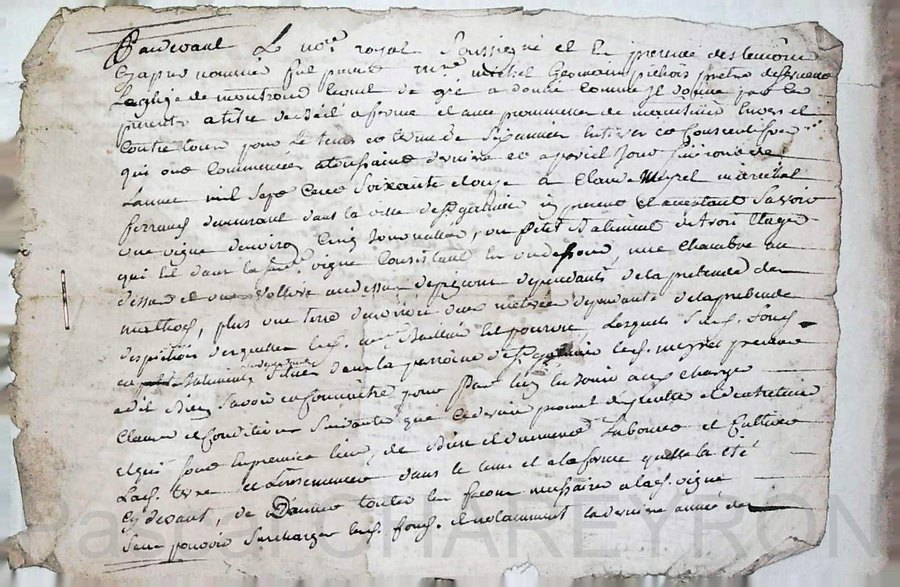 Pardevant Le nore royal Soussigné et en presence des temoins
cy apres nommés fut present mre michel Germain pichois pretre de
Leglize de montrond lequel de gré a donné comme Il donne par les
presentes a titre de bail a ferme et avec promesse de maintenir envers et
contre tous pour Le tems et terme de Six années entieres et Consecutives
qui ont Commencé a toussaint derniere et a pareil Jour finiront de
L'année mil Sept Cent Soixante douze a Claude Meyret marechal
ferrand demeurant dans la ville de St galmier present et acceptant Savoir
une vigne d'environ Cinq Journallées, un petit Batiment
qui est dans lad. vigne Consistant en un dessous, une chambre au
dessus et une voliere au dessus de pigeons dependants de la prebende des
plus une terre d'environ deux meterées dependante de la prebende
des pichois desquelles led. Bailleur est pourvu, Lesquels d. fonds
et Batiments Situés dans la parroisse de St galmier led. meyret preneur
a dit Bien Savoir et Connoitre, pour Par luy en Jouir aux charges
Clauses et Conditions Suivantes que Ce dernier promet d'executer et d'entretenir
et qui Sont en premier lieu, de Bien et duement Labourer et Cultiver
Lad. terre et L'ensemencer dans le tems et a la forme quelle la été
Cy devant, de Donner toutes les façons necessaires a lad. vigne
Sans pouvoir Surcharger lesd. fonds et notamment la derniere année de
Pascal CHAREYRON